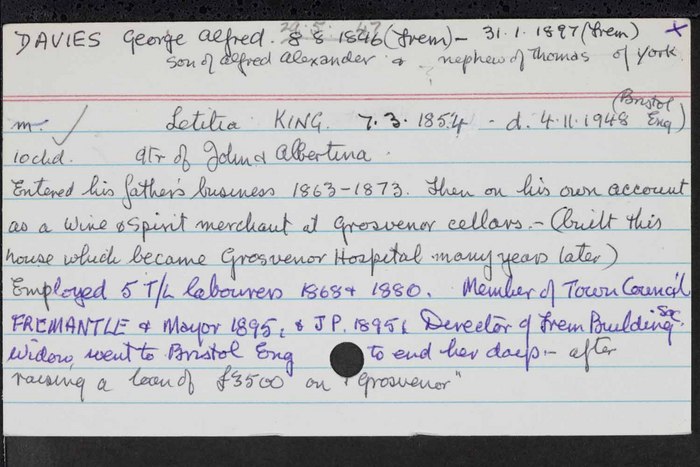 29.5.47
DAVIES George Alfred. 8 8 1846 (Frem) - 31.1.1897 (Frem) x
son of Alfred Alexander & nephew of Thomas of York
(Bristol
m. Letitia KING. 7.3.1854 - d. 4.11.1948 Eng)
10chd. dtr of John & Albertina.
Entered his father's business 1863-1873. Then on his own account
as a Wine & Spirit merchant at Grosvenor cellars. - (built this
house which became Grosvenor Hospital many years later)
Employed 5 T/L labourers 1868 & 1880. Member of Town Council
FREMANTLE & Mayor 1895, & JP. 1895, Director of Frem Building Soc.
Widow went to Bristol Eng to end her days - after
raising a loan of £3500 on "Grosvenor"